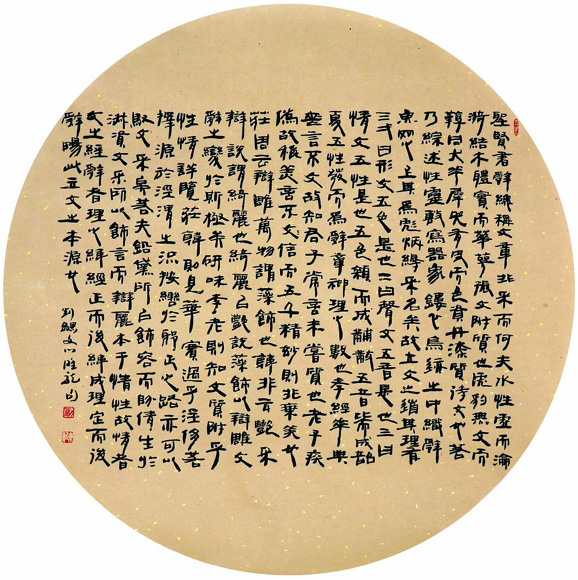 聖賢書辭總稱文章非采而何夫水性虛而淪
漪結木體實而華萼振文附質也虎豹無文而
鞹同犬羊犀兕有皮而色資丹漆質待文也若
乃綜述性靈敷寫器象鏤心鳥跡之中織辭
魚网之上其為彪炳縟采名矣故立文之道其理有
三一曰形文五色是也二曰聲文五音是也三曰
情文五性是也五色雜而成黼黻五音比而成韶
夏五性發而為辭章神理之數也孝經垂典
喪言不文故知君子常言未嘗質也老子疾
偽故稱美言不信而五千精妙則非棄美矣
莊周云辯雕萬物謂藻飾也韓非云艷采
辯說謂綺麗也綺麗以艷說藻飾以辯雕文
辭之變於斯極矣研味李老則知文質附乎
性情詳覽莊韓則見華實過乎淫侈若
擇源於涇渭之流按轡於邪正之路亦可以
馭文采矣若夫鉛黛所以飾容而盼倩生於
淑姿文采所以飾言而辯麗本于情性故情者
文之經辭者理之緯經正而後緯成理定而後
辭暢此立文之本源也
劉勰文心雕龍句